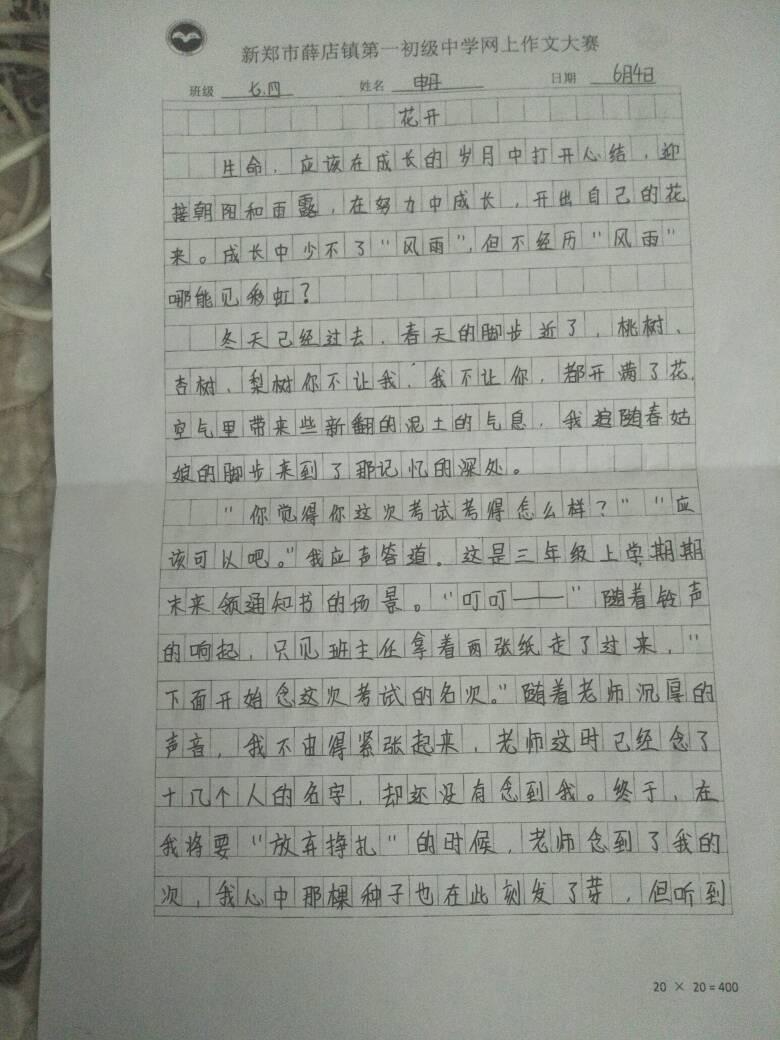 新郑市薛店镇第一初级中学网上作文大赛
班级 七.四 姓名 申丹 日期 6月4日
花开
生命，应该在成长的岁月中打开心结，迎
接朝阳和雨露，在努力中成长，开出自己的花
来。成长中少不了“风雨”，但不经历“风雨”
哪能见彩虹？
冬天已经过去，春天的脚步近了，桃树、
杏树、梨树你不让我，我不让你，都开满了花，
空气里带来些新翻的泥土的气息，我追随春姑
娘的脚步来到了那记忆的深处。
“你觉得你这次考试考得怎么样？”“应
该可以吧。”我应声答道。这是三年级上学期期
末来领通知书的场景。“叮叮——”随着铃声
的响起，只见班主任拿着两张纸走了过来，“
下面开始念这次考试的名次。”随着老师沉厚的
声音，我不由得紧张起来，老师这时已经念了
十几个人的名字，却还没有念到我。终于，在
我将要“放弃挣扎”的时候，老师念到了我的
次，我心中那棵种子也在此刻发了芽，但听到
20 × 20 = 400